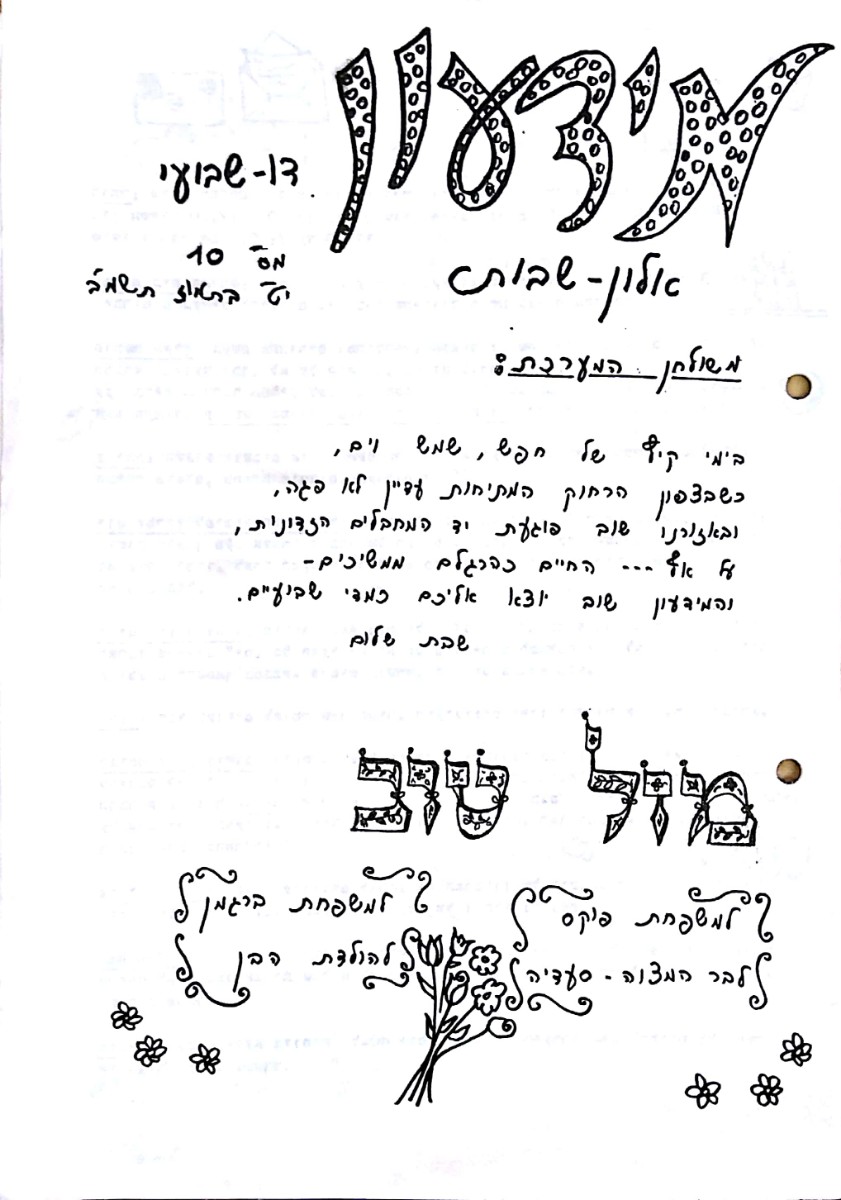 מידעון
דו-שבועי
אלון-שבות
מס' 10
י"ט בתמוז תשמ"ב
משולחן המערכת:
בימי קיץ של חפש, שמש וים,
כשבצפון הרחוק המתיחות עדיין לא פגה,
ובאזורנו שוב פוגעת יד המחבלים הזדונית,
על אף --- החיים כהרגלם ממשיכים-
והמידעון שוב יוצא אליכם כמדי שבועיים.
שבת שלום
מזל טוב
למשפחת פוקס
לבר המצוה - סעדיה
למשפחת ברגמן
להולדת הבן